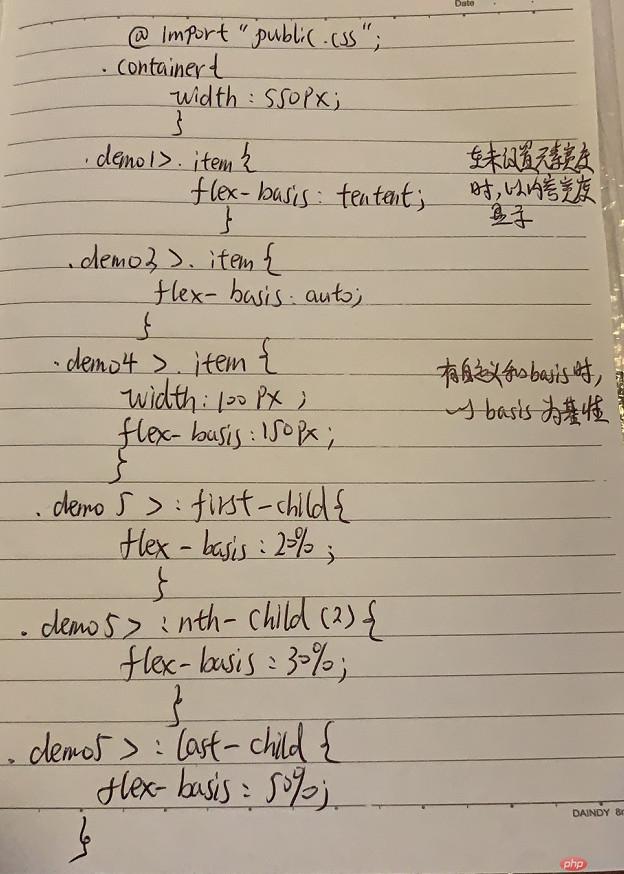 Date
@ import "public.css";
.container{
width: 550px;
}
.demo1>.item{
flex-basis: tentent;
}
在未设置元素宽度
时,以内容宽度
显示
.demo3>.item{
flex-basis: auto;
}
.demo4>.item{
width: 100px;
flex-basis: 150px;
}
有自定义和basis时,
以basis为基准
.demo5>:first-child{
flex-basis: 20%;
}
.demo5>:nth-child(2){
flex-basis: 30%;
}
.demo5>:last-child{
flex-basis: 50%;
}
DAINDY
php